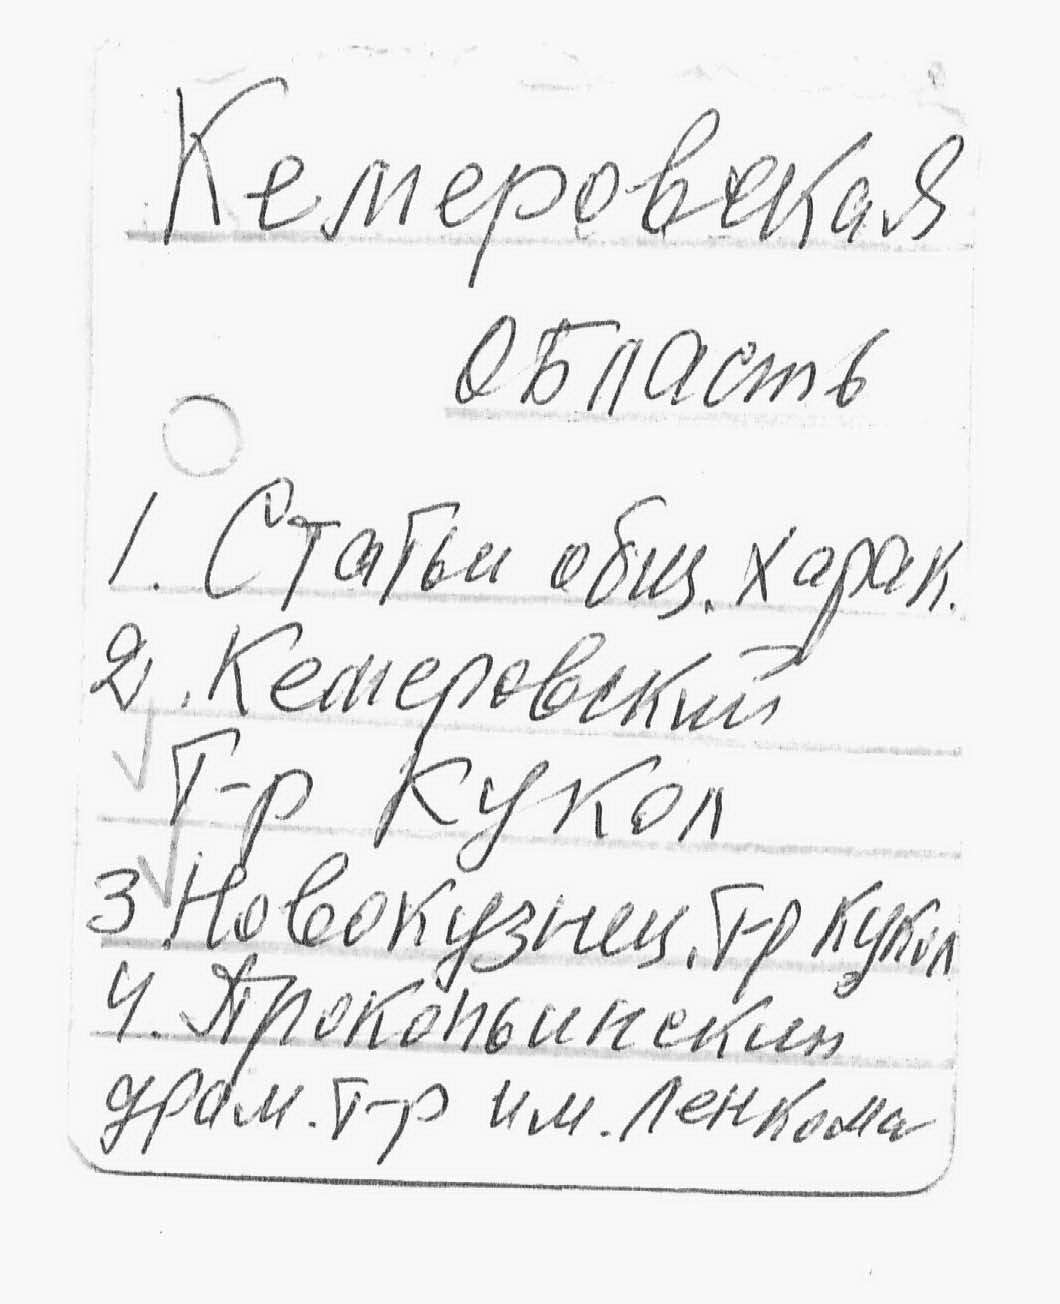 Кемеровская
область
1. Статьи общ. харак.
2. Кемеровский
Т-р Кукол
3. Новокузнец. Т-р Кукол
4. Прокопьинский
драм. т-р им. Ленкома